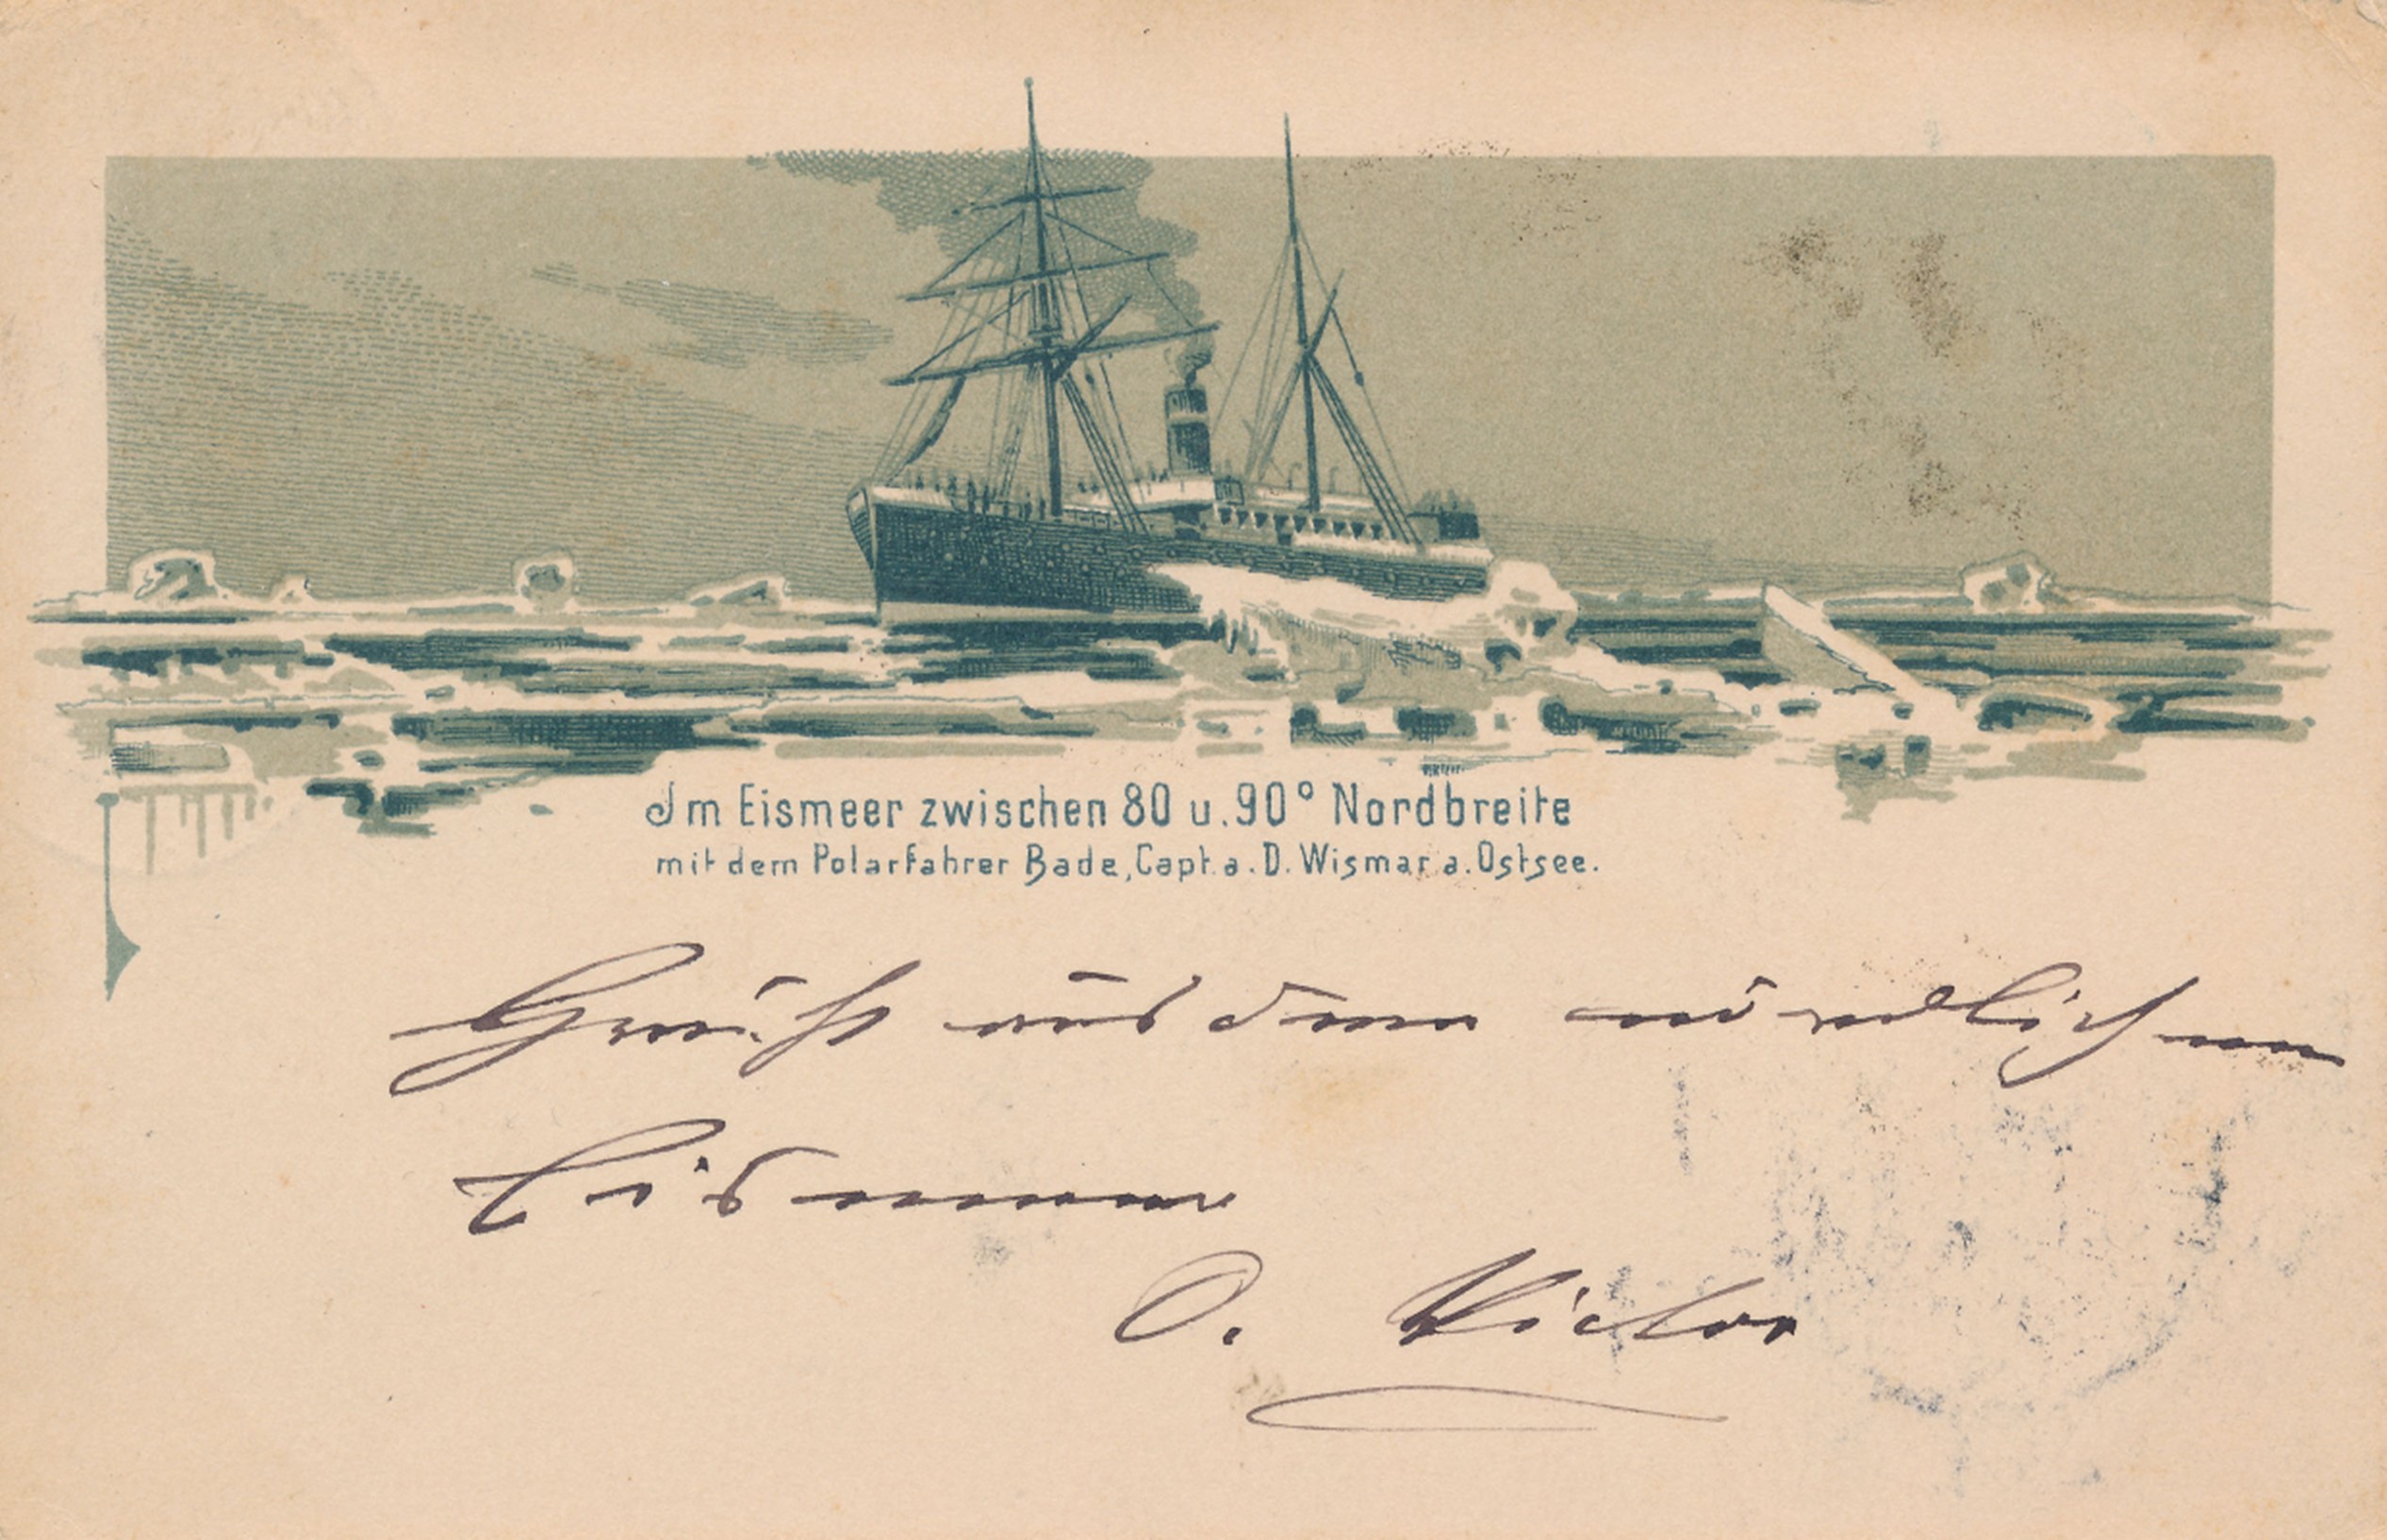 Im Eismeer zwischen 80 u. 90° Nordbreite
mit dem Polarfahrer Bade, Capt. a. D. Wismar a. Ostsee.
Gruß aus dem nördlichen
Eismeer
O. Victor